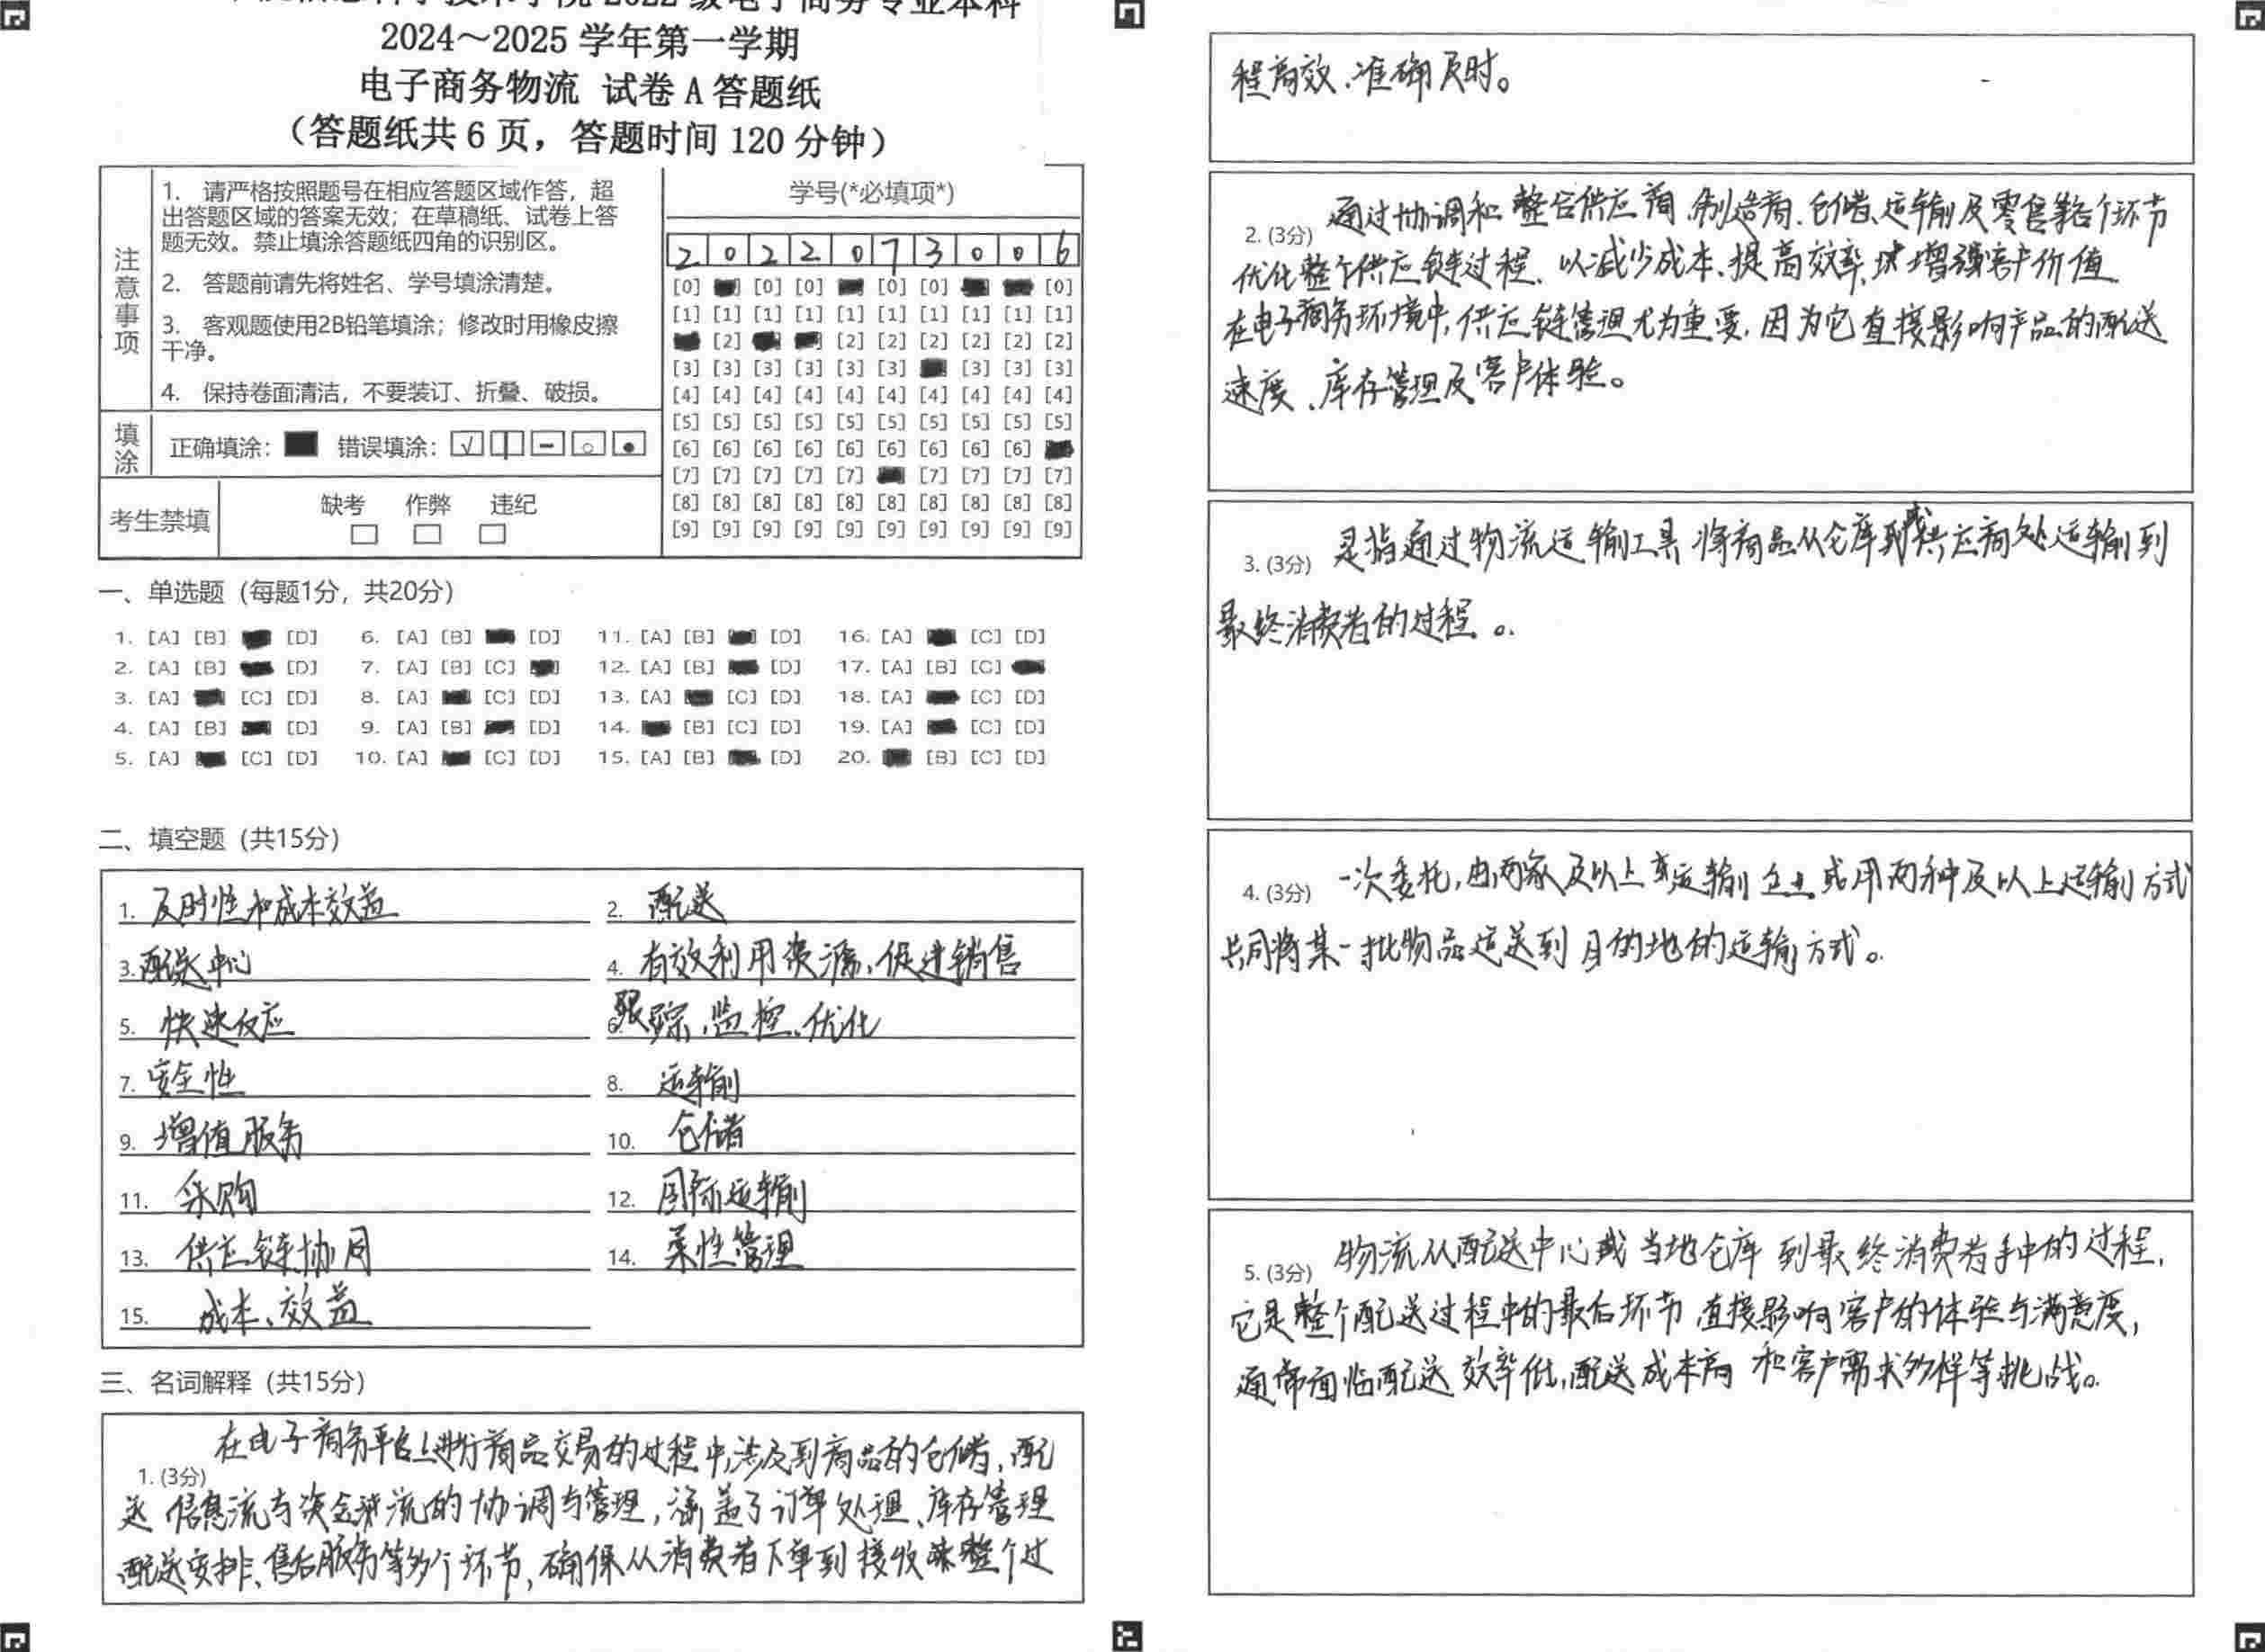 2024～2025 学年第一学期
电子商务物流 试卷 A 答题纸
（答题纸共 6 页，答题时间 120 分钟）
注意事项
1. 请严格按照题号在相应答题区域作答，超
出答题区域的答案无效；在草稿纸、试卷上答
题无效。禁止填涂答题纸四角的识别区。
2. 答题前请先将姓名、学号填涂清楚。
3. 客观题使用2B铅笔填涂；修改时用橡皮擦
干净。
4. 保持卷面清洁，不要装订、折叠、破损。
填涂
正确填涂： 错误填涂：
考生禁填
缺考 作弊 违纪
学号(*必填项*)
2 0 2 2 0 7 3 0 0 6
[0] [0] [0] [0] [0] [0]
[1] [1] [1] [1] [1] [1] [1] [1] [1] [1]
[2] [2] [2] [2] [2] [2] [2]
[3] [3] [3] [3] [3] [3] [3] [3] [3]
[4] [4] [4] [4] [4] [4] [4] [4] [4] [4]
[5] [5] [5] [5] [5] [5] [5] [5] [5] [5]
[6] [6] [6] [6] [6] [6] [6] [6] [6]
[7] [7] [7] [7] [7] [7] [7] [7] [7]
[8] [8] [8] [8] [8] [8] [8] [8] [8] [8]
[9] [9] [9] [9] [9] [9] [9] [9] [9] [9]
一、单选题（每题1分，共20分）
1. [A] [B] [D] 6. [A] [B] [D] 11. [A] [B] [D] 16. [A] [C] [D]
2. [A] [B] [D] 7. [A] [B] [C] 12. [A] [B] [D] 17. [A] [B] [C]
3. [A] [C] [D] 8. [A] [C] [D] 13. [A] [C] [D] 18. [A] [C] [D]
4. [A] [B] [D] 9. [A] [B] [D] 14. [B] [C] [D] 19. [A] [C] [D]
5. [A] [C] [D] 10. [A] [C] [D] 15. [A] [B] [D] 20. [B] [C] [D]
二、填空题（共15分）
1. 及时性和成本效益
2. 配送
3. 配送中心
4. 有效利用资源、促进销售
5. 快速反应
6. 跟踪、监控、优化
7. 安全性
8. 运输
9. 增值服务
10. 仓储
11. 采购
12. 国际运输
13. 供应链协同
14. 柔性管理
15. 成本、效益
三、名词解释（共15分）
1. (3分) 在电子商务平台上进行商品交易的过程中，涉及到商品的仓储，配
送 信息流与资金流的协调与管理，涵盖了订单处理、库存管理
配送安排、售后服务等多个环节，确保从消费者下单到接收整个过
程高效、准确及时。
2. (3分) 通过协调和整合供应商、制造商、仓储、运输及零售等各个环节
优化整个供应链过程、以减少成本、提高效率，增强客户价值
在电子商务环境中，供应链管理尤为重要，因为它直接影响产品的配送
速度、库存管理及客户体验。
3. (3分) 是指通过物流运输工具 将商品从仓库或供应商处运输到
最终消费者的过程。
4. (3分) 一次委托，由两家及以上运输企业或用两种及以上运输方式
共同将某一批物品运送到目的地的运输方式。
5. (3分) 物流从配送中心或当地仓库 到最终消费者手中的过程，
它是整个配送过程中的最后环节 直接影响客户的体验与满意度，
通常面临配送效率低，配送成本高 和客户需求多样等挑战。